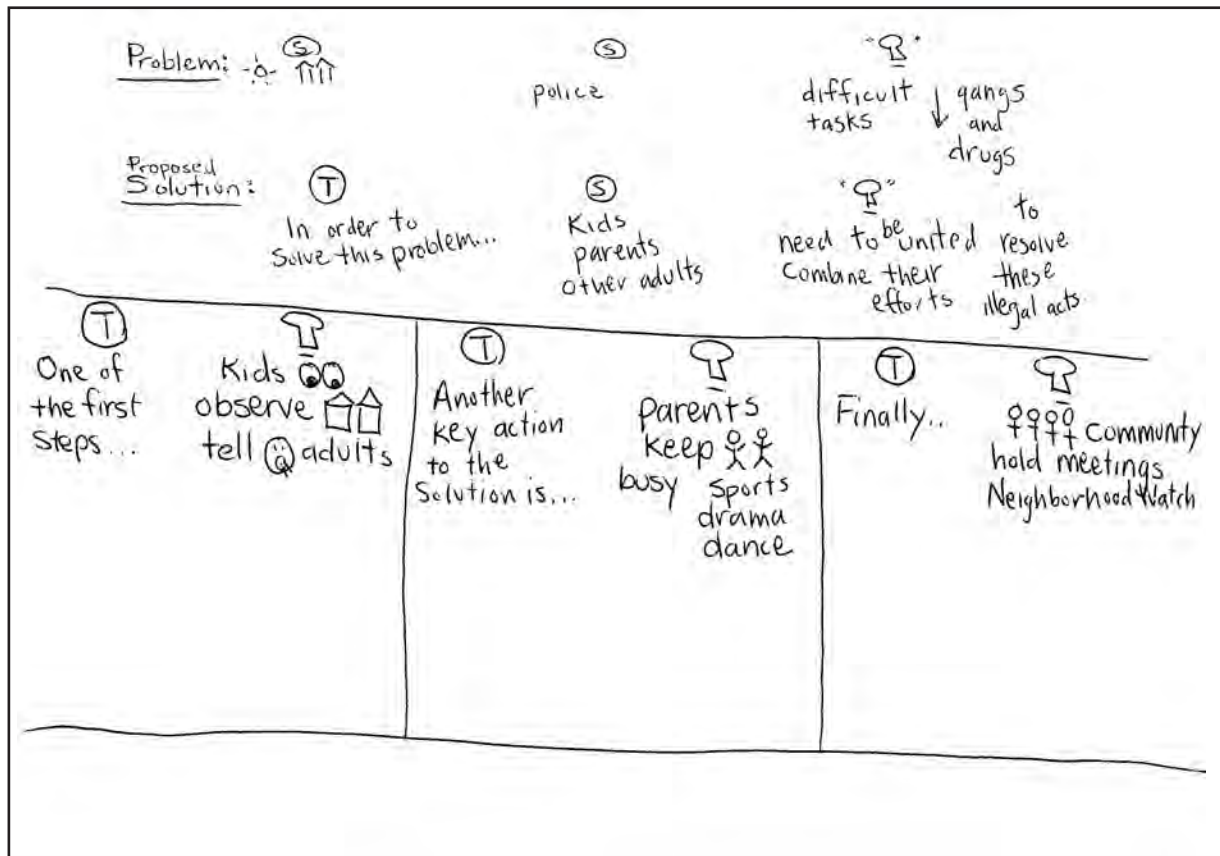 Problem: S
S
police
" "
difficult
tasks
gangs
and
drugs
Proposed
Solution: T
In order to
Solve this problem...
S
Kids
parents
Other adults
" "
need to be united
Combine their
efforts
to
resolve
these
illegal acts
T
One of
the first
steps...
Kids
observe
tell adults
T
Another
key action
to the
Solution is...
parents
keep
busy sports
drama
dance
T
Finally..
Community
hold meetings
Neighborhood Watch